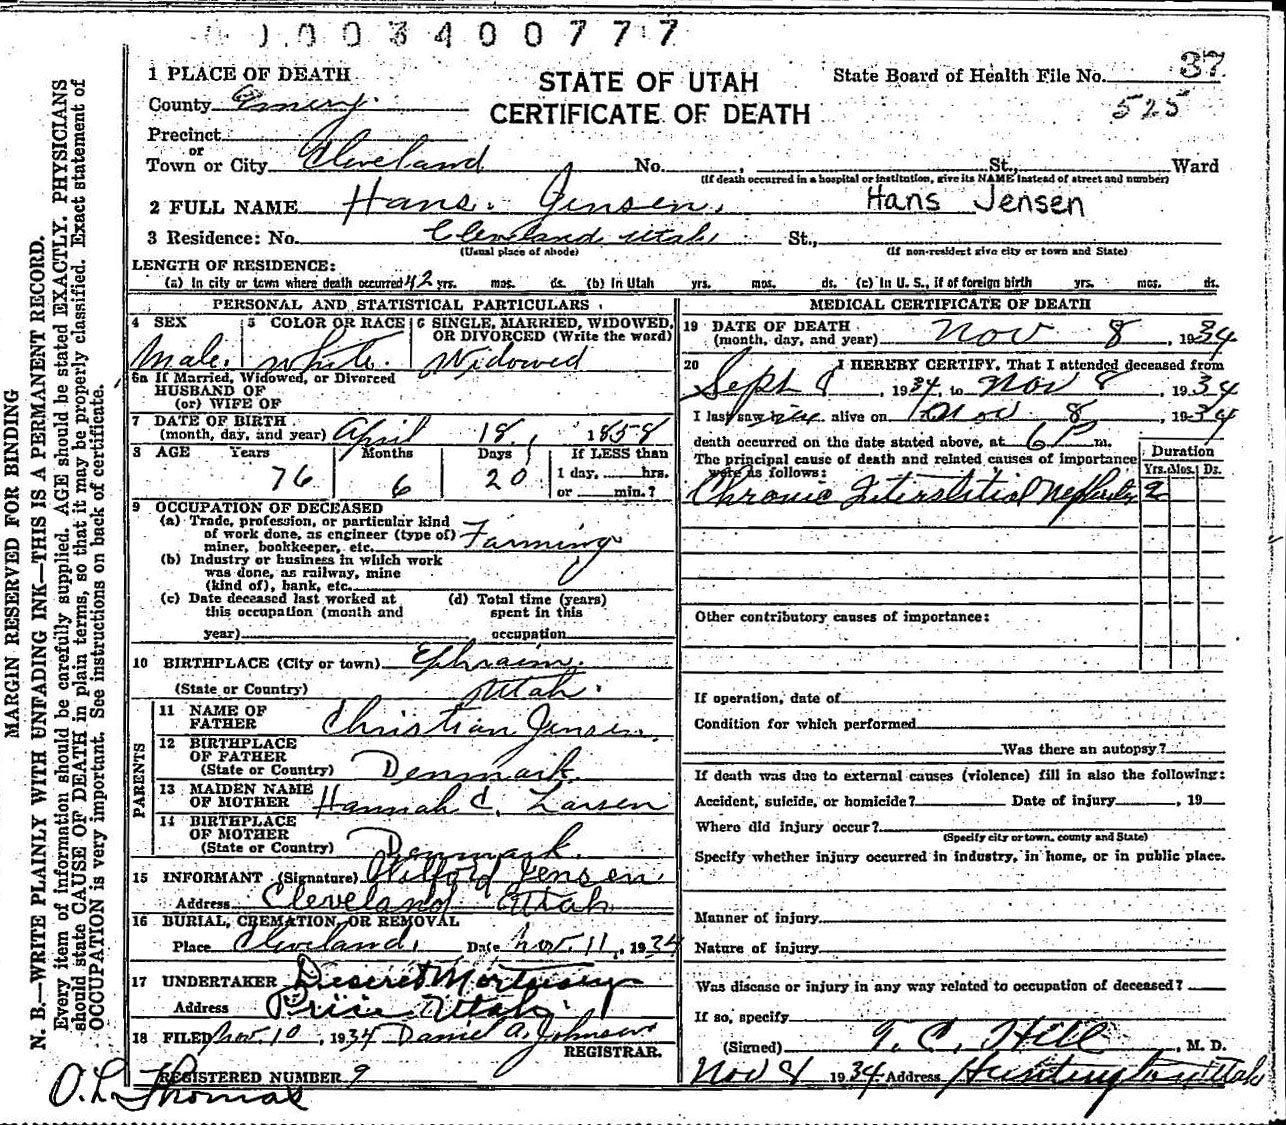 0 1 0 0 3 4 0 0 7 7 7
MARGIN RESERVED FOR BINDING
N. B.—WRITE PLAINLY WITH UNFADING INK—THIS IS A PERMANENT RECORD.
Every item of information should be carefully supplied. AGE should be stated EXACTLY. PHYSICIANS
should state CAUSE OF DEATH in plain terms, so that it may be properly classified. Exact statement of
OCCUPATION is very important. See instructions on back of certificate.
STATE OF UTAH
CERTIFICATE OF DEATH
State Board of Health File No. 37
525
1 PLACE OF DEATH
County Emery.
Precinct
or
Town or City Cleveland No. , St., Ward
(If death occurred in a hospital or institution, give its NAME instead of street and number)
2 FULL NAME Hans. Jensen. Hans Jensen
3 Residence: No. Cleveland, Utah. St.,
(Usual place of abode) (If non-resident give city or town and State)
LENGTH OF RESIDENCE:
(a) In city or town where death occurred 42 yrs. mos. ds. (b) In Utah yrs. mos. ds. (c) In U. S., if of foreign birth yrs. mos. ds.
PERSONAL AND STATISTICAL PARTICULARS
4 SEX Male.
5 COLOR OR RACE White.
6 SINGLE, MARRIED, WIDOWED, OR DIVORCED (Write the word) Widowed
6a If Married, Widowed, or Divorced
HUSBAND OF
(or) WIFE OF
7 DATE OF BIRTH
(month, day, and year) April 18, 1858
8 AGE Years Months Days If LESS than
76 6 20 1 day, hrs.
or min.?
9 OCCUPATION OF DECEASED
(a) Trade, profession, or particular kind
of work done, as engineer (type of) Farming
miner, bookkeeper, etc.
(b) Industry or business in which work
was done, as railway, mine
(kind of), bank, etc.
(c) Date deceased last worked at (d) Total time (years)
this occupation (month and spent in this
year) occupation
10 BIRTHPLACE (City or town) Ephraim.
(State or Country) Utah.
PARENTS
11 NAME OF
FATHER Christian Jensen.
12 BIRTHPLACE
OF FATHER
(State or Country) Denmark.
13 MAIDEN NAME
OF MOTHER Hannah C. Larsen
14 BIRTHPLACE
OF MOTHER
(State or Country) Denmark.
15 INFORMANT (Signature) Wilford Jensen.
Address Cleveland Utah
16 BURIAL, CREMATION, OR REMOVAL
Place Cleveland. Date Nov. 11, 1934
17 UNDERTAKER Deseret Mortuary
Address Price Utah.
18 FILED Nov. 10, 1934 Daniel A. Johnson
REGISTRAR.
REGISTERED NUMBER 9
O. L. Thomas
MEDICAL CERTIFICATE OF DEATH
19 DATE OF DEATH
(month, day, and year) Nov 8, 1934
20 I HEREBY CERTIFY, That I attended deceased from
Sept 8, 1934, to Nov 8, 1934
I last saw him alive on Nov 8, 1934
death occurred on the date stated above, at 6 P m.
The principal cause of death and related causes of importance
were as follows:
Duration
Yrs. Mos. Ds.
Chronic Interstitial Nephritis 2
Other contributory causes of importance:
If operation, date of
Condition for which performed
Was there an autopsy?
If death was due to external causes (violence) fill in also the following:
Accident, suicide, or homicide? Date of injury , 19
Where did injury occur?
(Specify city or town, county and State)
Specify whether injury occurred in industry, in home, or in public place.
Manner of injury
Nature of injury
Was disease or injury in any way related to occupation of deceased?
If so, specify
(Signed) T. C. Hill, M. D.
Nov 8 1934 Address Huntington Utah